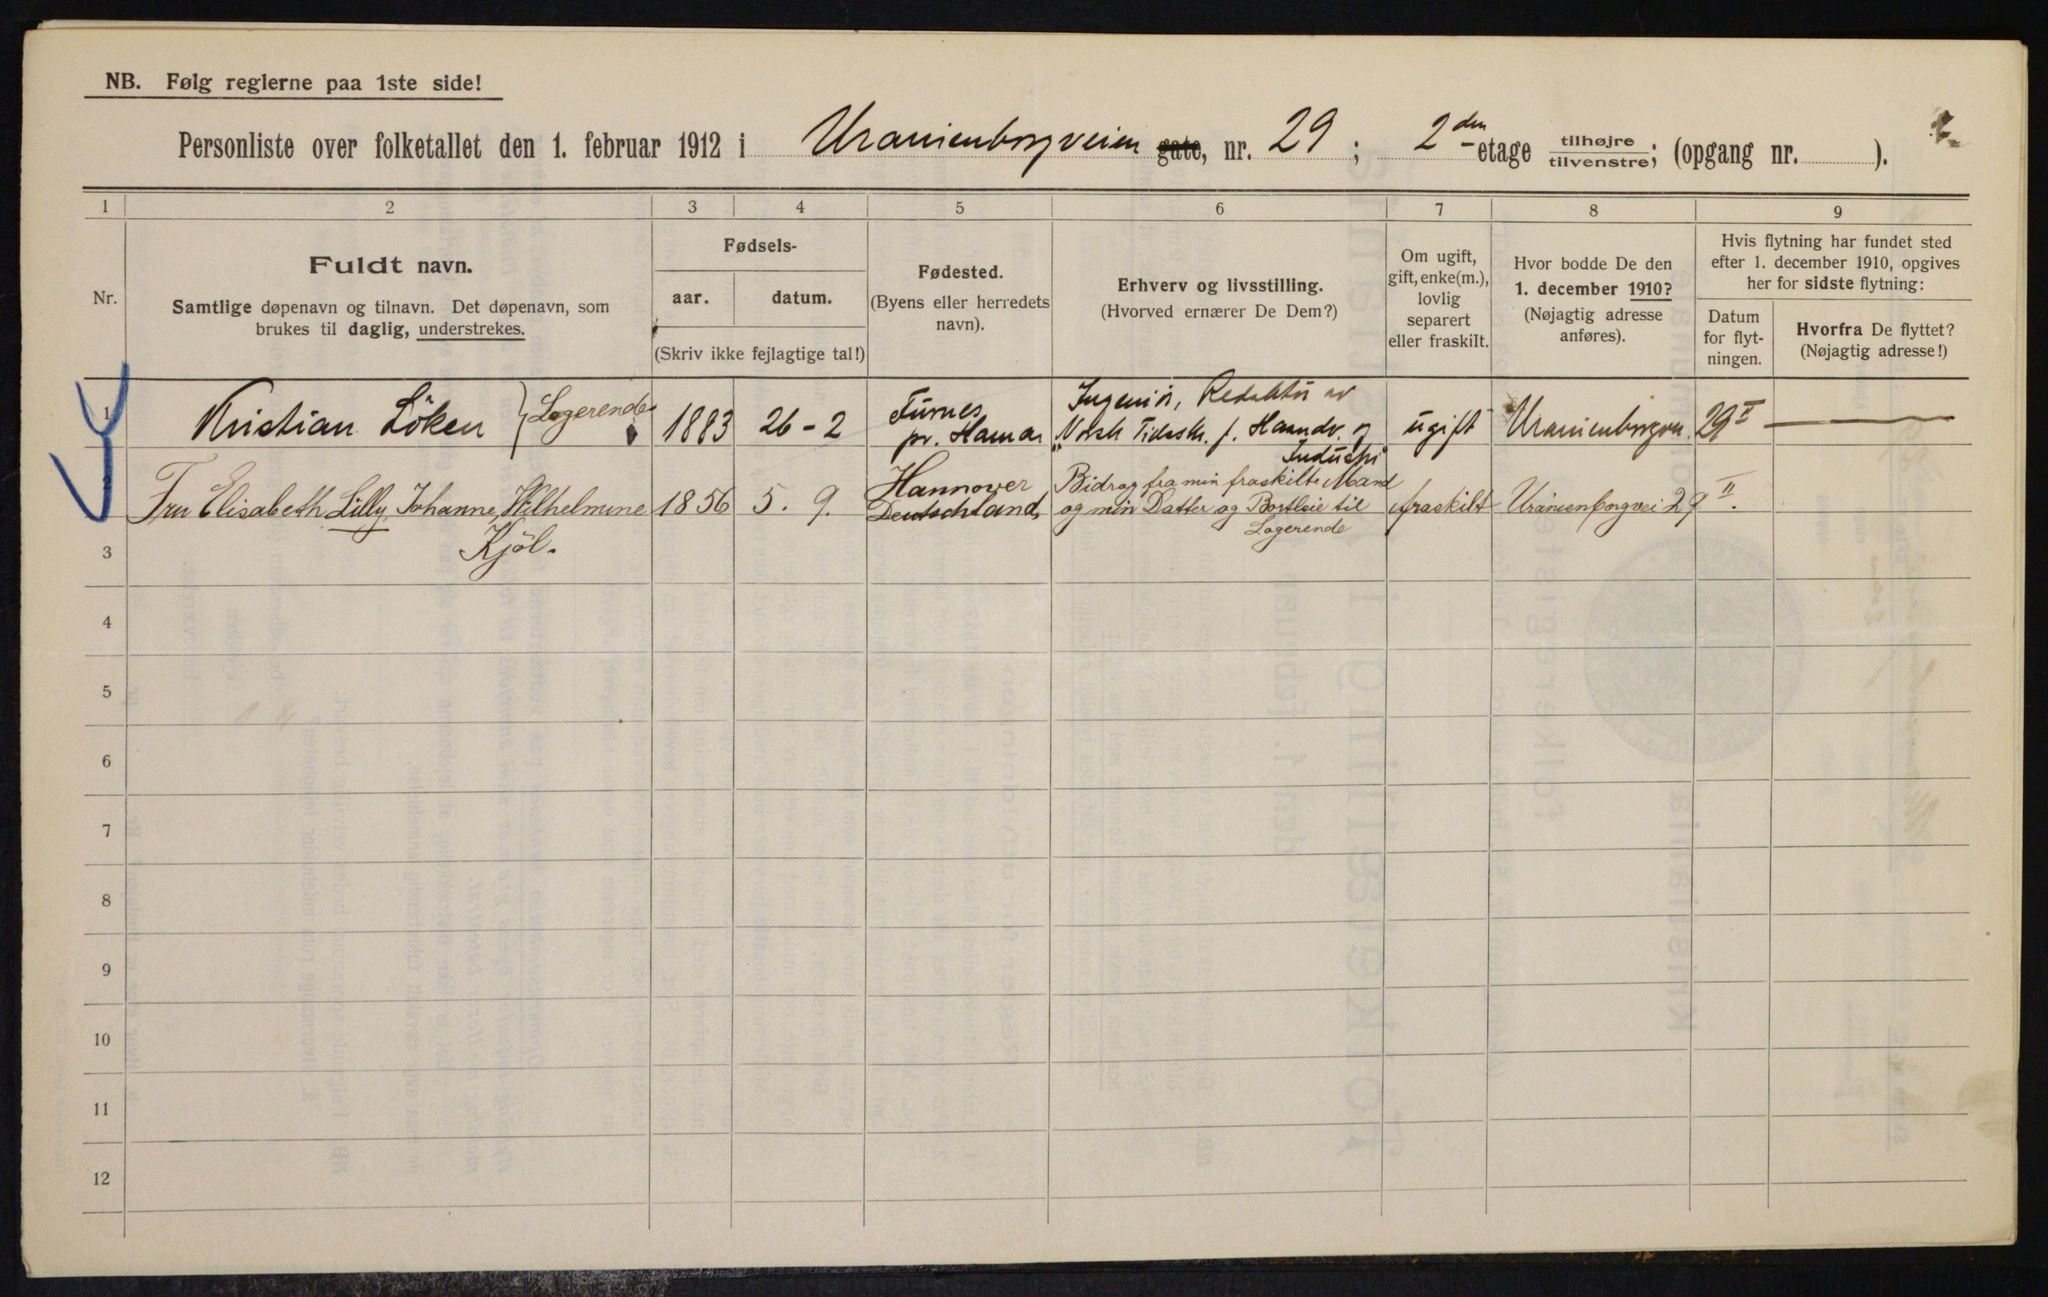 NB. Følg reglerne paa 1ste side!
Personliste over folketallet den 1. februar 1912 i Uranienborgveien gate, nr. 29 ; 2den etage tilhøjre/tilvenstre; (opgang nr. ).
1 2 3 4 5 6 7 8 9
Nr.
Fuldt navn.
Samtlige døpenavn og tilnavn. Det døpenavn, som
brukes til daglig, understrekes.
Fødsels-
aar. datum.
(Skriv ikke fejlagtige tal!)
Fødested.
(Byens eller herredets
navn).
Erhverv og livsstilling.
(Hvorved ernærer De Dem?)
Om ugift,
gift, enke(m.),
lovlig
separert
eller fraskilt.
Hvor bodde De den
1. december 1910?
(Nøjagtig adresse
anføres).
Hvis flytning har fundet sted
efter 1. december 1910, opgives
her for sidste flytning:
Datum
for flyt-
ningen.
Hvorfra De flyttet?
(Nøjagtig adresse!)
1 Kristian Löken } Logerende 1883 26-2 Furnes
pr. Hamar
Ingeniör, Redaktör av
"Norsk Tidsskr. f. Haandv. og
Industri"
ugift Uranienborgvn. 29 II
2 Fru Elisabeth Lilly Johanne, Wilhelmine
Kjöl.
1856 5. 9. Hannover
Deutschland,
Bidrag fra min fraskilte Mand
og min Datter og Bortleie til
Logerende
fraskilt Uranienborgvei 29 II.
3
4
5
6
7
8
9
10
11
12